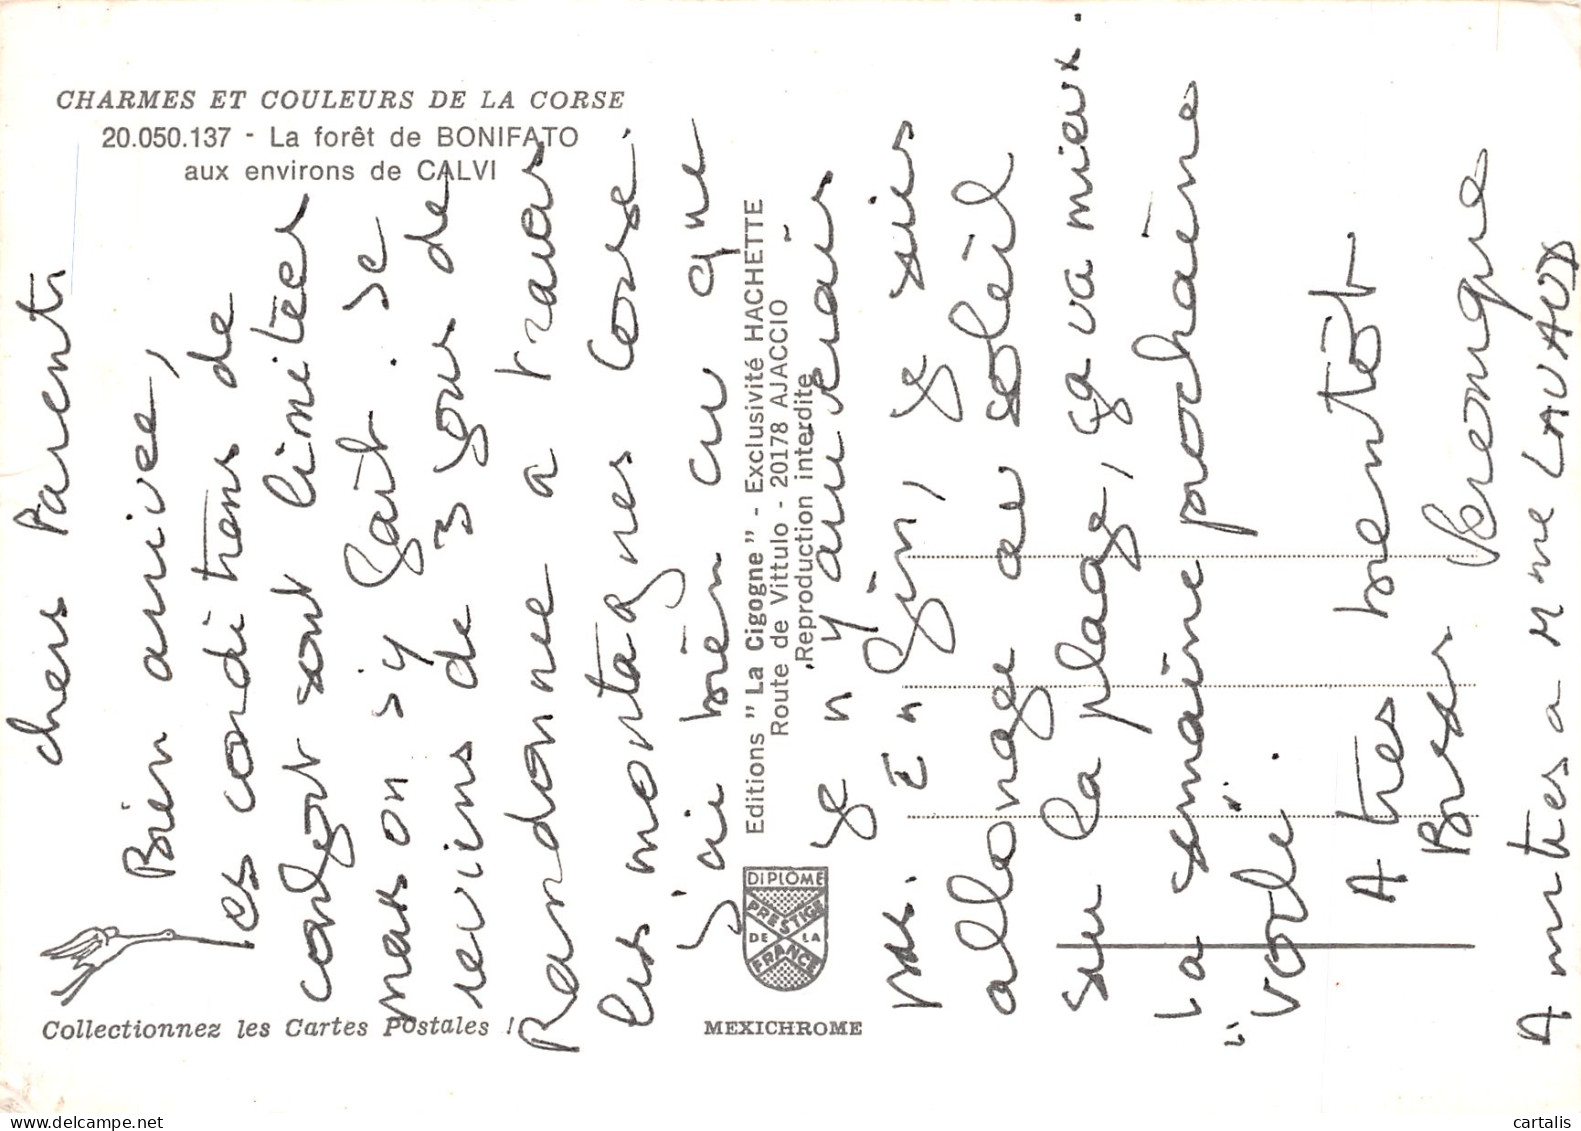 CHARMES ET COULEURS DE LA CORSE
20.050.137 - La forêt de BONIFATO
aux environs de CALVI
Collectionnez les Cartes Postales !
Editions " La Cigogne " - Exclusivité HACHETTE
Route de Vittulo - 20178 AJACCIO
Reproduction interdite
DIPLOME
PRESTIGE
DE LA
FRANCE
MEXICHROME
chers Parents
Bien arrivée,
les conditions de
confort sont limitées
mais on s'y fait. Je
reviens de 3 jour de
Randonnée a travers
les montagnes Corse.
J'ai bien cru que
je n'y arriverais
pas. Enfin, je suis
allongée au soleil
sur la plage, ça va mieux.
La semaine prochaine
"voile".
A très bientôt
Bises
Amitiés a M Mme LAVAUD